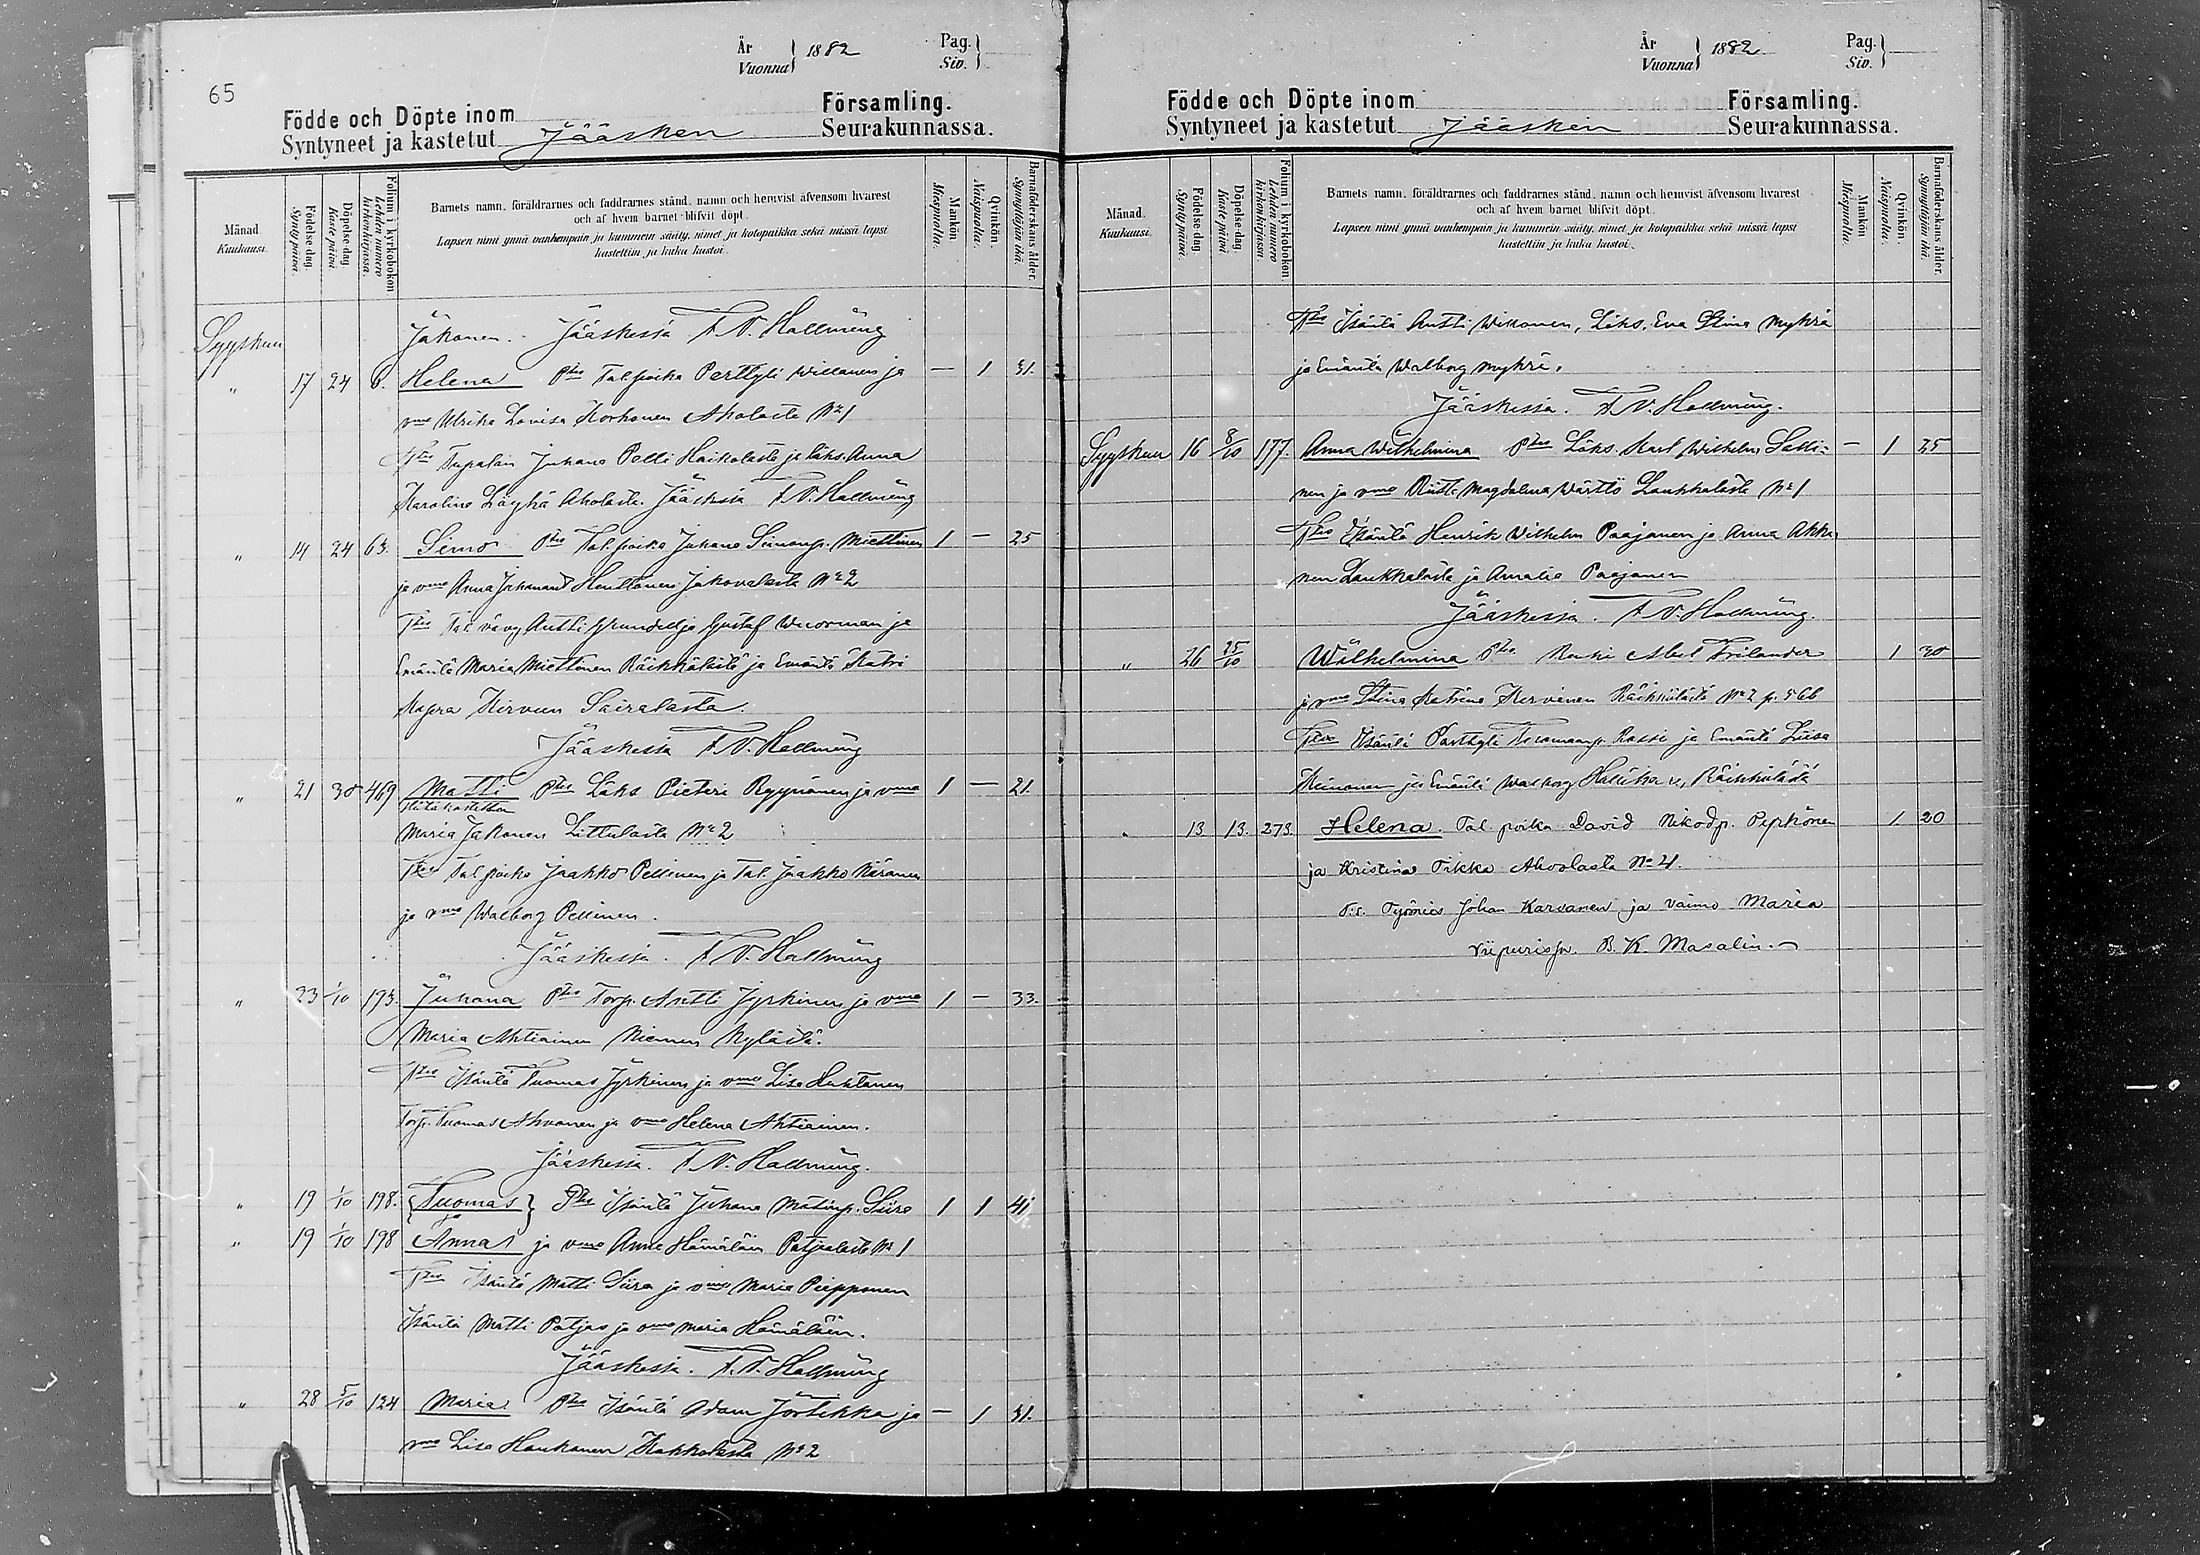 65
År
Vuonna } 1882
Pag.
Siv. }
Födde och Döpte inom Församling.
Syntyneet ja kastetut Jääsken Seurakunnassa.
Månad. Kuukausi.
Födelse dag. Synty päivä.
Döpelse dag. Kaste päivä.
Folium i kyrkoboken. Lehden numero kirkonkirjassa.
Barnets namn, föräldrarnes och faddrarnes stånd, namn och hemvist äfvensom hvarest
och af hvem barnet blifvit döpt.
Lapsen nimi ynnä vanhempain ja kummein sääty, nimet ja kotopaikka sekä missä lapsi
kastettiin ja kuka kastoi.
Mankön. Miespuolta.
Qvinkön. Naispuolta.
Barnaföderskans ålder. Synnyttäjän ikä.
Syyskuu Jakonen. Jääskessä F. V. Hallmeng
" 17 24 6. Helena Ptus Tal. poika Perttyli Willanen ja — 1 31.
vmo Ulrika Lovisa Korhonen Aholasta No 1
Juhana Pelli Haikolasta ja Läks. Anna
Karolina Läyhä Aholasta. Jääskessä F. V. Hallmeng
" 14 24 63. Simo Ptus Tal. poika Juhana Simonp. Miettinen 1 — 25
ja vmo Anna Juhanant Huuttonen Jakovalasta No 2
Tes Tal. vävy Antti Grundel ja Gustaf ja
Emäntä Maria Miettinen Räikkälästä ja Emäntä Katri
Kirvun Sairalasta.
Jääskessä F. V. Hallmeng
" 21 30 469 Matti Ptus Läks Pieteri Ryynänen ja vmo 1 — 21.
Hätäkastettu
Maria Jakonen Littulasta No 2
Tes Tal. poika Jaakko Pellinen ja Tal. Jaakko Näränen
ja vmo Walborg Pellinen.
Jääskessä. F. V. Hallmeng
" 23 1/10 193. Juhana Ptus Torp. Antti Jyrkinen ja vmo 1 — 33.
Maria Ahtiainen Niemen kylästä.
Tes Isäntä Tuomas Jyrkinen ja vmo Lisa Huhtanen
Torp. Tuomas Ahvonen ja vmo Helena Ahtiainen.
Jääskessä. F. V. Hallmeng.
" 19 1/10 198. {Tuomas} Ptus Isäntä Juhana Matinp. Siira 1 1 41
ja
" 19 1/10 198 Anna ja vmo Anna Hämäläin Patjalasta No 1
Tes Isäntä Matti Siira ja vmo Maria Piepponen
Isäntä Matti Patjas ja vmo Maria Hämäläin.
Jääskessä. F. V. Hallmeng
" 28 5/10 124 Maria Ptus Isäntä Adam Jortikka ja — 1 31.
vmo Lisa Haukanen Kakkolasta No 2
År
Vuonna } 1882
Pag.
Siv. }
Födde och Döpte inom Församling.
Syntyneet ja kastetut Jääsken Seurakunnassa.
Månad. Kuukausi.
Födelse dag. Synty päivä.
Döpelse dag. Kaste päivä.
Folium i kyrkoboken. Lehden numero kirkonkirjassa.
Barnets namn, föräldrarnes och faddrarnes stånd, namn och hemvist äfvensom hvarest
och af hvem barnet blifvit döpt.
Lapsen nimi ynnä vanhempain ja kummein sääty, nimet ja kotopaikka sekä missä lapsi
kastettiin ja kuka kastoi.
Mankön. Miespuolta.
Qvinkön. Naispuolta.
Barnaföderskans ålder. Synnyttäjän ikä.
Tes Isäntä Antti Willonen, Läks. Eva Stina Mykrä
ja Emäntä Walborg Mykrä.
Jääskessä. F. V. Hallmeng.
Syyskuu 16 8/10 177. Anna Wilhelmina Ptus Läks. Karl Wilhelm Salli- — 1 25
nen ja vmo Magdalena Wärttö Laukkalasta No 1
Tes Isäntä Henrik Wilhelm Paajanen ja Anna Akka-
nen Laukkalasta ja Amalia Paajanen
Jääskessä. F. V. Hallmeng.
" 26 25/10 Wilhelmina Ptus Renki Abel Frilander 1 30
ja vmo Stina Katrina Hirvonen Räikkölästä No 2 p. 566
Tes Isäntä Parttyli Tuomanp. Rassi ja Emäntä Liisa
Heinonen ja Emäntä Walborg Räikkölästä
" 13 13. 273. Helena. Tal. poika David Nikodp. Pyykönen 1. 20
ja Kristina Tikka Ahvolasta No 4.
T:t. Työmies Johan Karvanen ja vaimo Maria
Viipurissa. B. K. Masalin.